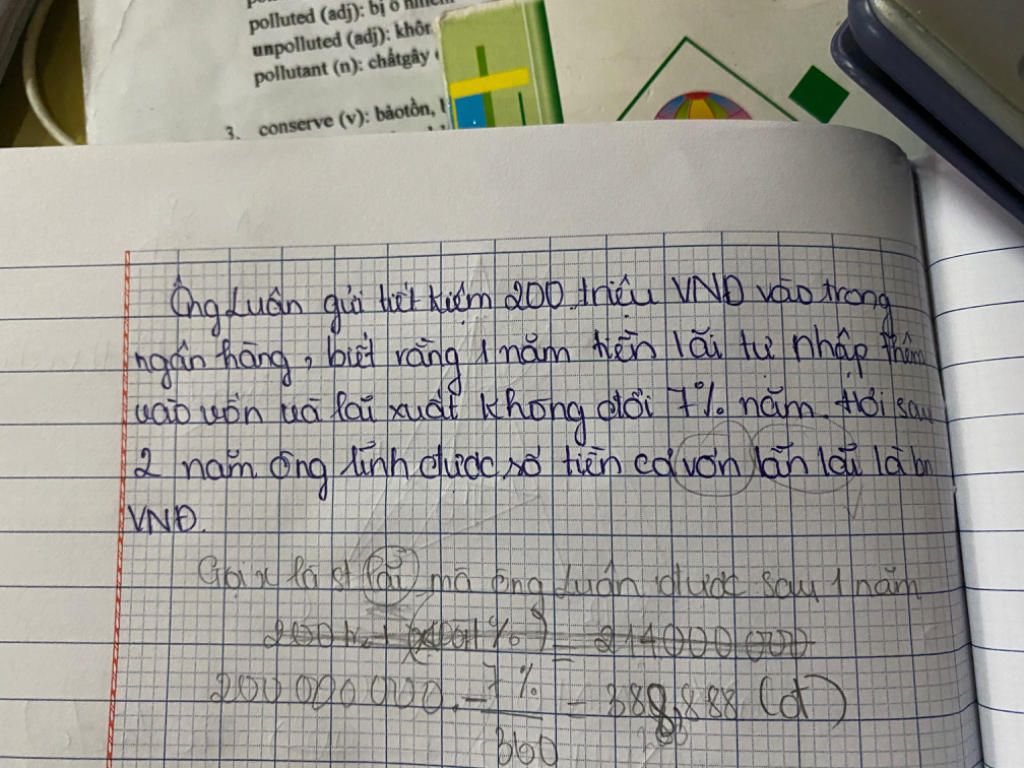 polluted (adj): bị ô nhiễm
unpolluted (adj): khôn
pollutant (n): chấtgây
3. conserve (v): bảotồn,
Ông Luân gửi tiết kiệm 200 triệu VNĐ vào trong
ngân hàng, biết rằng 1 năm tiền lãi tự nhập thêm
vào vốn và lãi xuất không đổi 7% năm. Hỏi sau
2 năm ông lĩnh được số tiền cả vốn lẫn lãi là bn
VNĐ.
Gọi x là st lãi mà ông Luân được sau 1 năm
= 214000 000
200 000 000 . 7% / 360 = 388,888 (đ)